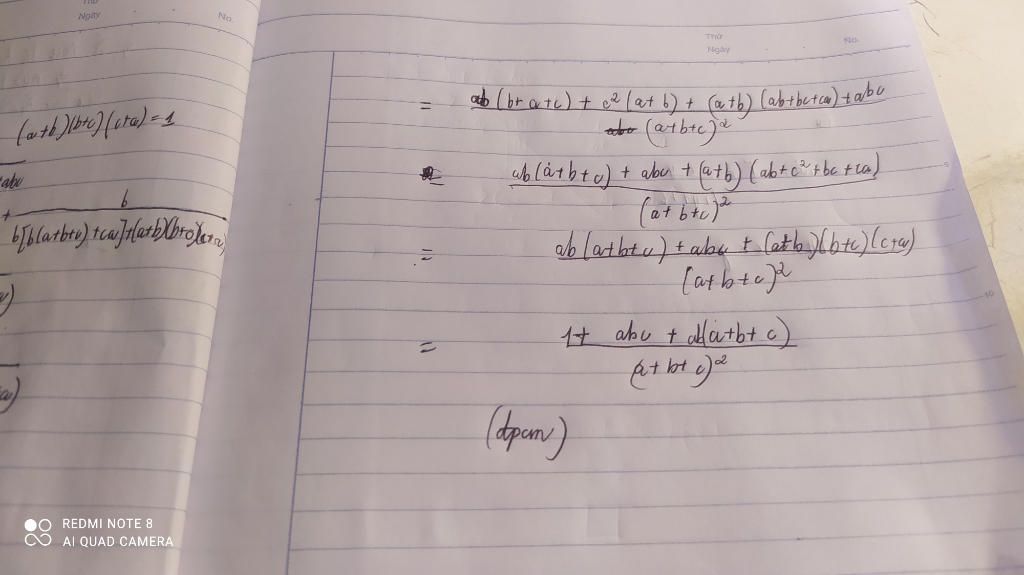 Thứ
Ngày
No.
(a+b)(b+c)(c+a)=1
+abc
+ b / b[b(a+b+c)+ca]+(a+b)(b+c)(c+a)
Thứ
Ngày
No.
= ab(b+a+c) + c²(a+b) + (a+b)(ab+bc+ca)+abc / (a+b+c)²
= ab(a+b+c) + abc + (a+b)(ab+c²+bc+ca) / (a+b+c)²
= ab(a+b+c)+abc + (a+b)(b+c)(c+a) / (a+b+c)²
= 1+ abc + ab(a+b+c) / (a+b+c)²
(đpcm)
REDMI NOTE 8
AI QUAD CAMERA